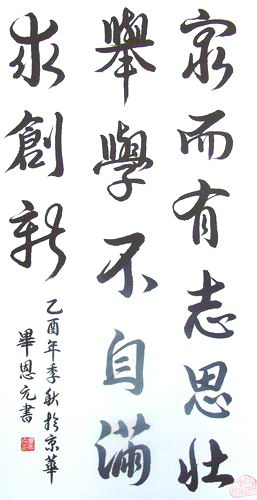 而有志思壮
舉學不自滿
求創新
乙酉年季秋於京華
畢恩元書